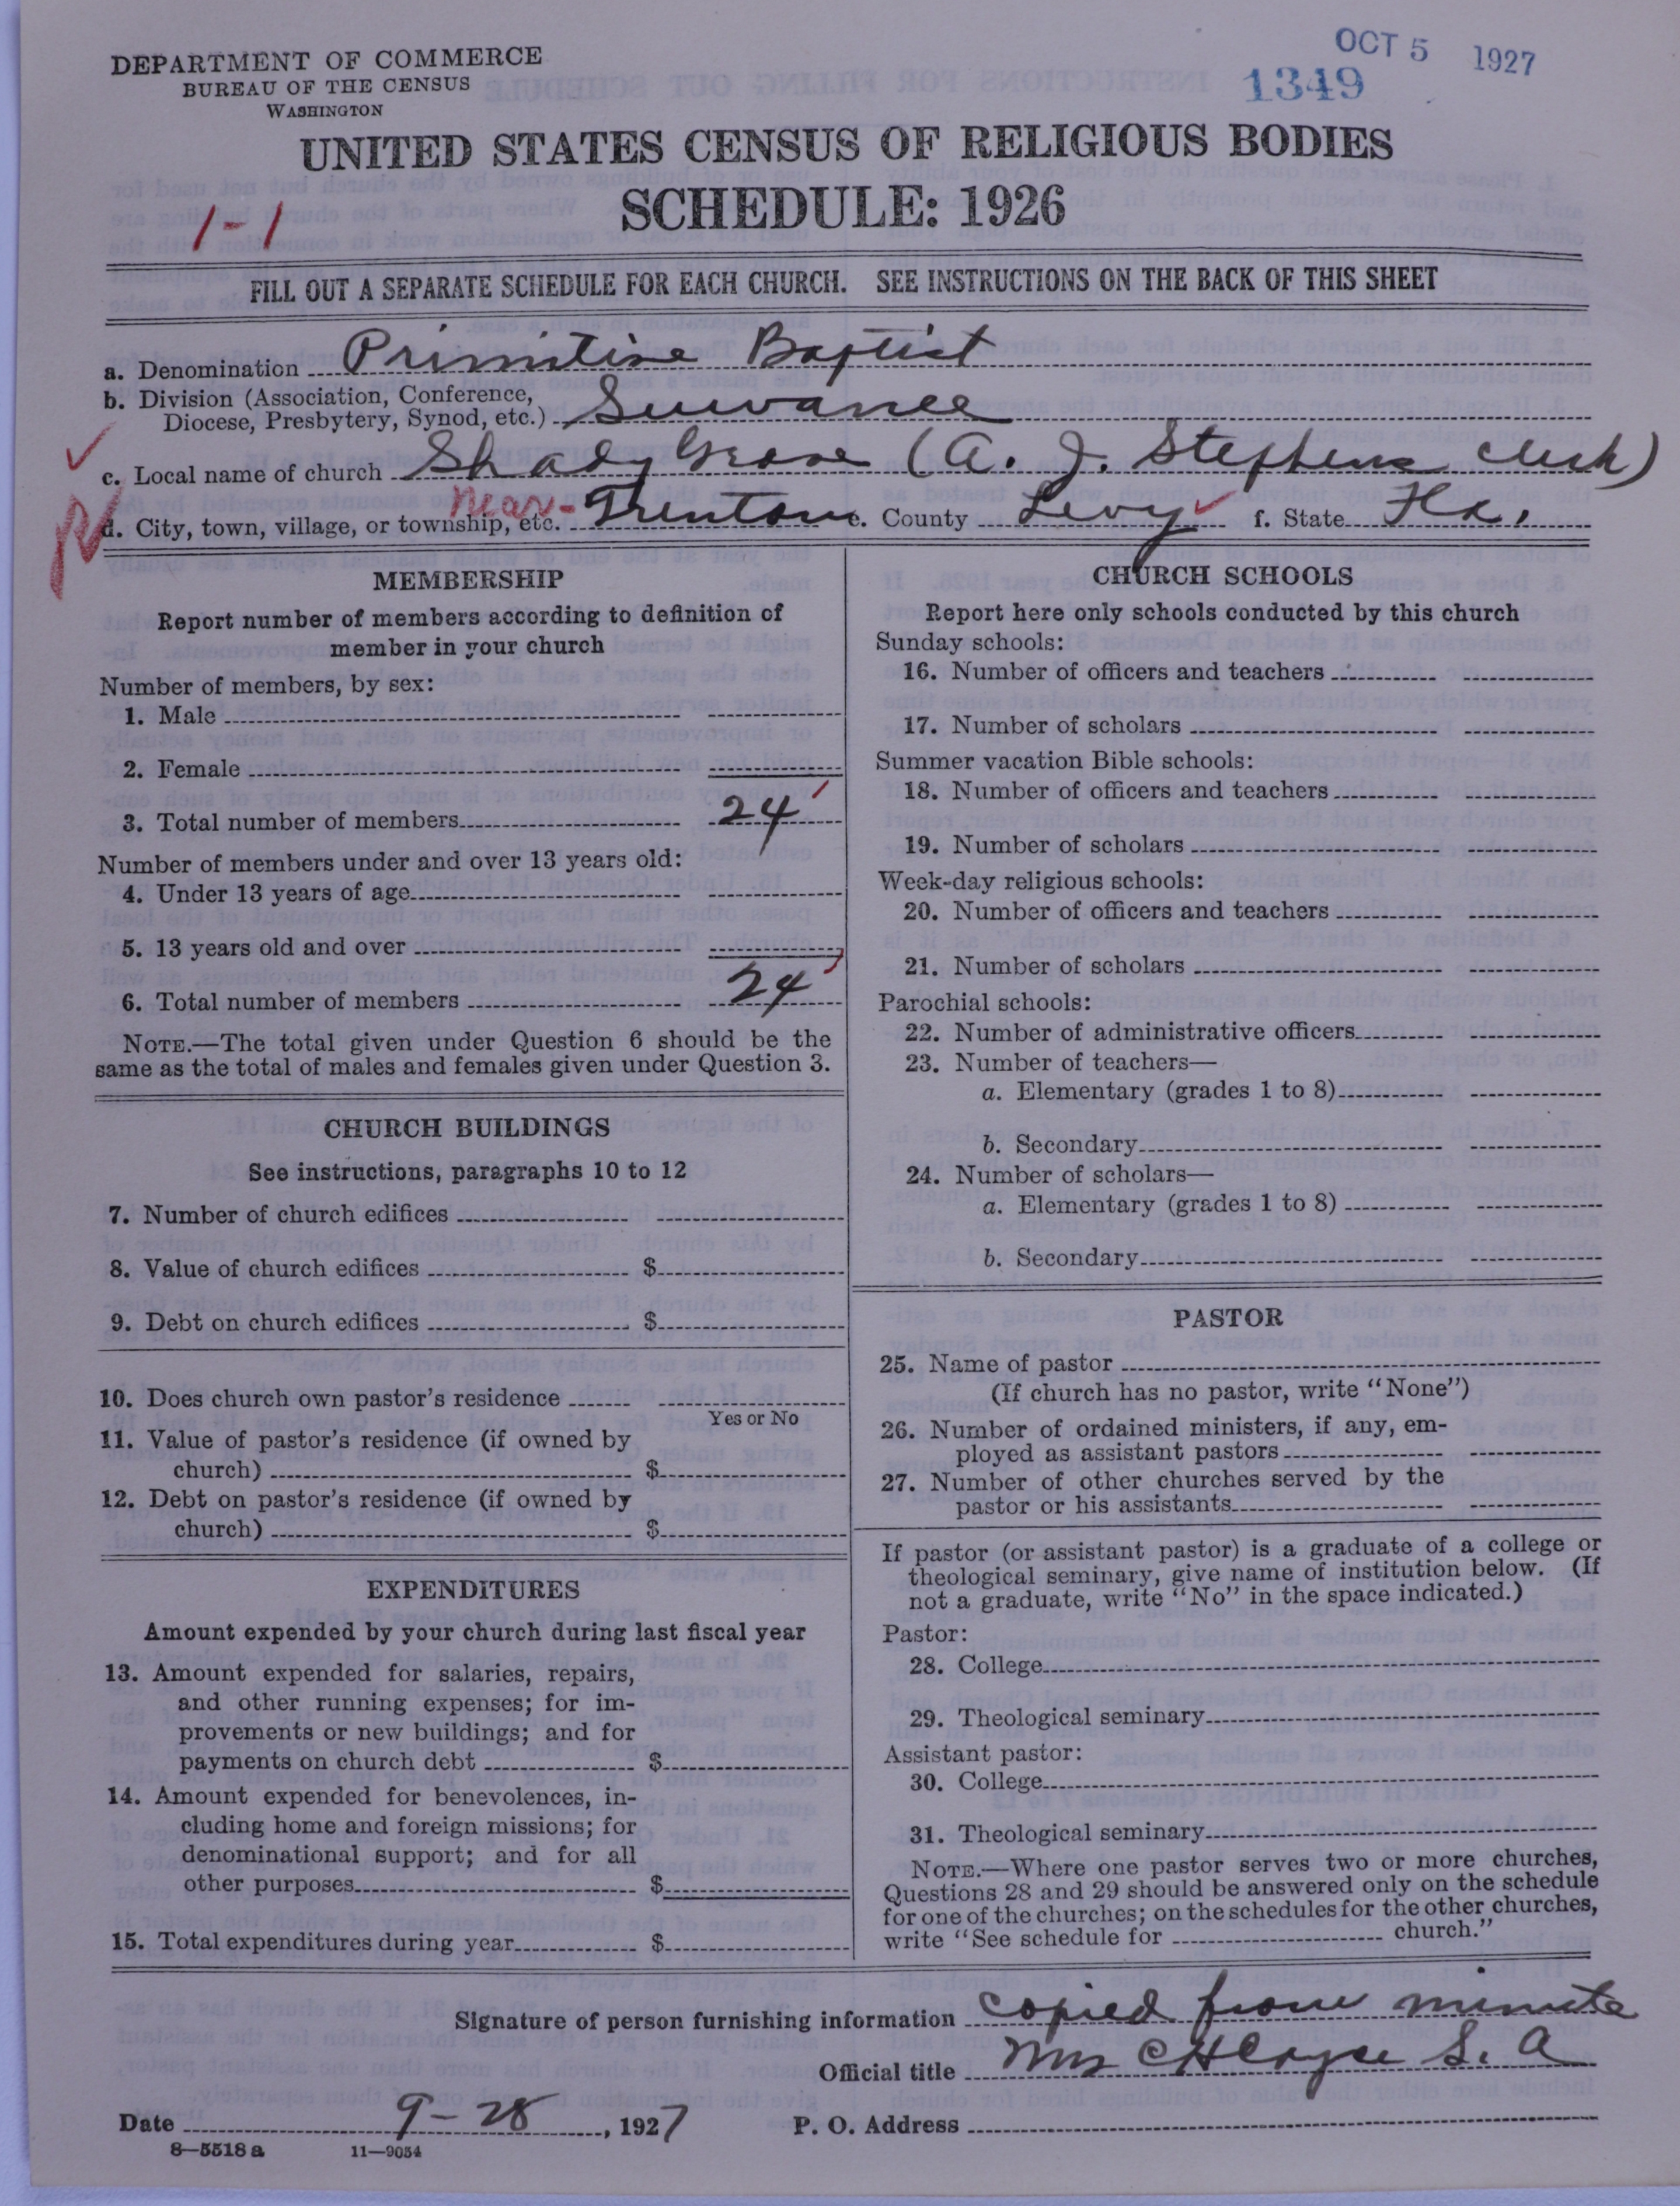 OCT 5 1927
1349
DEPARTMENT OF COMMERCE
BUREAU OF THE CENSUS
WASHINGTON
UNITED STATES CENSUS OF RELIGIOUS BODIES
SCHEDULE: 1926
1-1
FILL OUT A SEPARATE SCHEDULE FOR EACH CHURCH. SEE INSTRUCTIONS ON THE BACK OF THIS SHEET
a. Denomination Primitive Baptist
b. Division (Association, Conference,
Diocese, Presbytery, Synod, etc.) Suwanee
c. Local name of church Shady Grove (A. J. Stephens Clerk)
d. City, town, village, or township, etc. Near- Trenton e. County Levy f. State Fla.
MEMBERSHIP
Report number of members according to definition of
member in your church
Number of members, by sex:
1. Male
2. Female
3. Total number of members 24
Number of members under and over 13 years old:
4. Under 13 years of age
5. 13 years old and over
6. Total number of members 24
NOTE.—The total given under Question 6 should be the
same as the total of males and females given under Question 3.
CHURCH BUILDINGS
See instructions, paragraphs 10 to 12
7. Number of church edifices
8. Value of church edifices $
9. Debt on church edifices $
10. Does church own pastor's residence
Yes or No
11. Value of pastor's residence (if owned by
church) $
12. Debt on pastor's residence (if owned by
church) $
EXPENDITURES
Amount expended by your church during last fiscal year
13. Amount expended for salaries, repairs,
and other running expenses; for im-
provements or new buildings; and for
payments on church debt $
14. Amount expended for benevolences, in-
cluding home and foreign missions; for
denominational support; and for all
other purposes $
15. Total expenditures during year $
CHURCH SCHOOLS
Report here only schools conducted by this church
Sunday schools:
16. Number of officers and teachers
17. Number of scholars
Summer vacation Bible schools:
18. Number of officers and teachers
19. Number of scholars
Week-day religious schools:
20. Number of officers and teachers
21. Number of scholars
Parochial schools:
22. Number of administrative officers
23. Number of teachers—
a. Elementary (grades 1 to 8)
b. Secondary
24. Number of scholars—
a. Elementary (grades 1 to 8)
b. Secondary
PASTOR
25. Name of pastor
(If church has no pastor, write "None")
26. Number of ordained ministers, if any, em-
ployed as assistant pastors
27. Number of other churches served by the
pastor or his assistants
If pastor (or assistant pastor) is a graduate of a college or
theological seminary, give name of institution below. (If
not a graduate, write "No" in the space indicated.)
Pastor:
28. College
29. Theological seminary
Assistant pastor:
30. College
31. Theological seminary
NOTE.—Where one pastor serves two or more churches,
Questions 28 and 29 should be answered only on the schedule
for one of the churches; on the schedules for the other churches,
write "See schedule for church."
Signature of person furnishing information copied from minute
Official title Mrs C H S. A
Date 9-28, 1927 P. O. Address
8—5518 a 11—9054